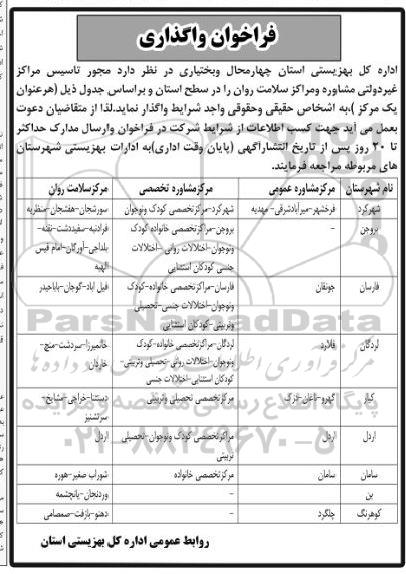 فراخوان واگذاری
اداره کل بهزیستی استان چهارمحال وبختیاری در نظر دارد مجوز تاسیس مراکز
غیردولتی مشاوره ومراکز سلامت روان را در سطح استان و براساس جدول ذیل (هرعنوان
یک مرکز )،به اشخاص حقیقی وحقوقی واجد شرایط واگذار نماید.لذا از متقاضیان دعوت
بعمل می آید جهت کسب اطلاعات از شرایط شرکت در فراخوان وارسال مدارک حداکثر
تا ۲۰ روز پس از تاریخ انتشارآگهی (پایان وقت اداری)به ادارات بهزیستی شهرستان
های مربوطه مراجعه فرمایند.
نام شهرستان مرکزمشاوره عمومی مرکزمشاوره تخصصی مرکزسلامت روان
شهرکرد فرخشهر-میرآبادشرقی- مهدیه شهرکرد-مرکزتخصصی کودک ونوجوان سورشجان-هفشجان-منظریه
بروجن - بروجن-مرکزتخصصی خانواده کودک فرادنبه-سفیددشت-نقنه-
ونوجوان-اختلالات روانی -اختلالات بلداجی-آورگان-امام قیس
جنسی کودکان استثنایی الهیه
فارسان جونقان فارسان-مرکزتخصصی خانواده-کودک فیل اباد-گوجان-باباحیدر
ونوجوان-اختلالات جنسی-تحصیلی
وتربیتی-کودکان استثنایی
لردگان فلارد لردگان-مرکزتخصصی خانواده-کودک خانمیرزا-سردشت-منج-
ونوجوان-اختلالات روانی-تحصیلی وتربیتی- خاردان
کودکان استثنایی-اختلالات جنسی
کیار گهرو-ناغان-خراجی مرکزتخصصی تحصیلی وتربیتی دستنا-خراجی-مشایخ-
سرتشنیز
اردل اردل مرکزتخصصی کودک ونوجوان-تحصیلی اردل
تربیتی
سامان سامان مرکزتخصصی خانواده شوراب صغیر-هوره
بن - - وردنجان-یانچشمه
کوهرنگ چلگرد - دهنو-بازفت-صمصامی
روابط عمومی اداره کل بهزیستی استان
ParsNamadData
پایگاه اطلاع رسانی مناقصه و مزایده
۰۲۱-۸۸۳۴۹۶۷۰-۵